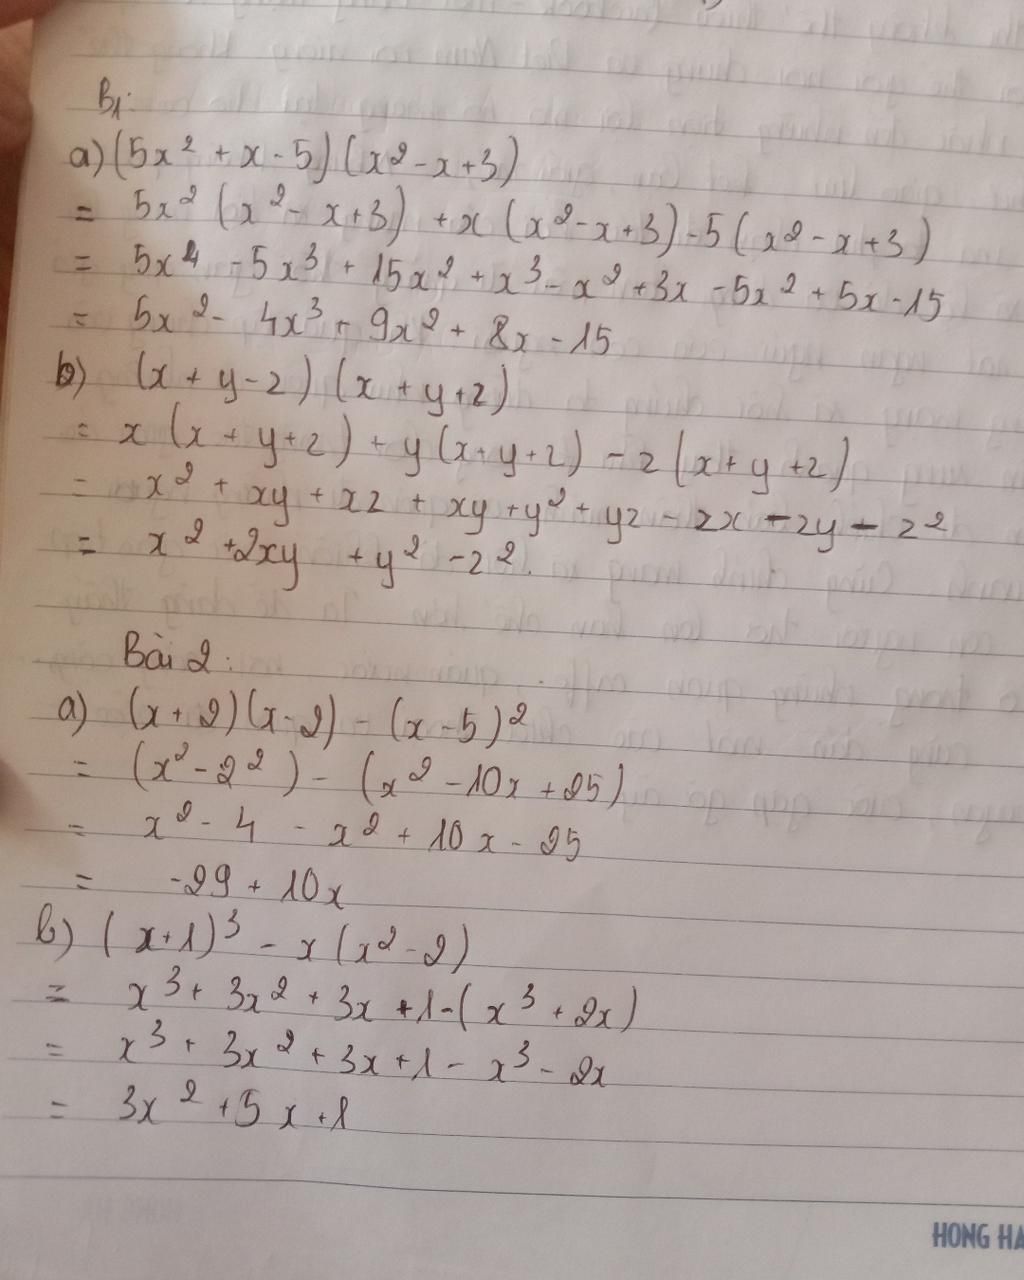 B1:
a) (5x² + x - 5) (x² - x + 3)
= 5x² (x² - x + 3) + x (x² - x + 3) - 5 (x² - x + 3)
= 5x⁴ - 5x³ + 15x² + x³ - x² + 3x - 5x² + 5x - 15
= 5x² - 4x³ + 9x² + 8x - 15
b) (x + y - z) (x + y + z)
= x (x + y + z) + y (x + y + z) - z (x + y + z)
= x² + xy + xz + xy + y² + yz - zx - zy - z²
= x² + 2xy + y² - z².
Bài 2:
a) (x + 2) (x - 2) - (x - 5)²
= (x² - 2²) - (x² - 10x + 25)
= x² - 4 - x² + 10x - 25
= -29 + 10x
b) (x + 1)³ - x (x² - 2)
= x³ + 3x² + 3x + 1 - (x³ + 2x)
= x³ + 3x² + 3x + 1 - x³ - 2x
= 3x² + 5x + 1
HONG HA